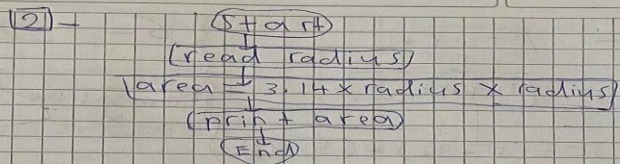 2 -
Start
read radius
area = 3.14 x radius x radius
print area
End